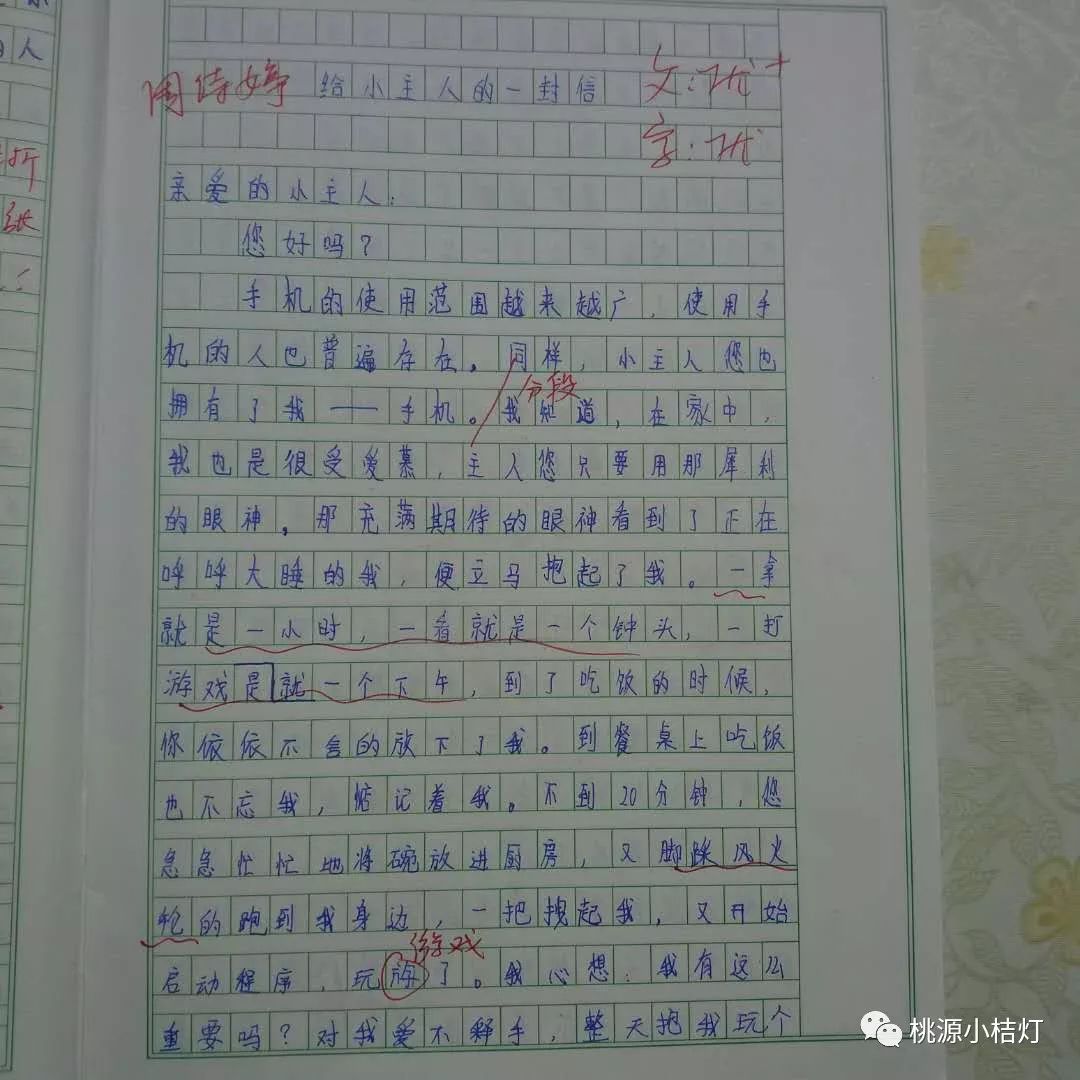 人
折
纸
周诗婷 给小主人的一封信 文:优+
字:优
亲爱的小主人:
您好吗?
手机的使用范围越来越广,使用手
机的人也普遍存在。同样,小主人您也
分段
拥有了我——手机。我知道,在家中,
我也是很受爱慕,主人您只要用那犀利
的眼神,那充满期待的眼神看到了正在
呼呼大睡的我,便立马抱起了我。一拿
就是一小时,一看就是一个钟头,一打
游戏是就一个下午,到了吃饭的时候,
你依依不舍的放下了我。到餐桌上吃饭
也不忘我,惦记着我。不到20分钟,您
急急忙忙地将碗放进厨房,又脚踩风火
轮的跑到我身边,一把拽起我,又开始
游戏
启动程序,玩了。我心想:我有这么
重要吗?对我爱不释手,整天抱我玩个
桃源小桔灯